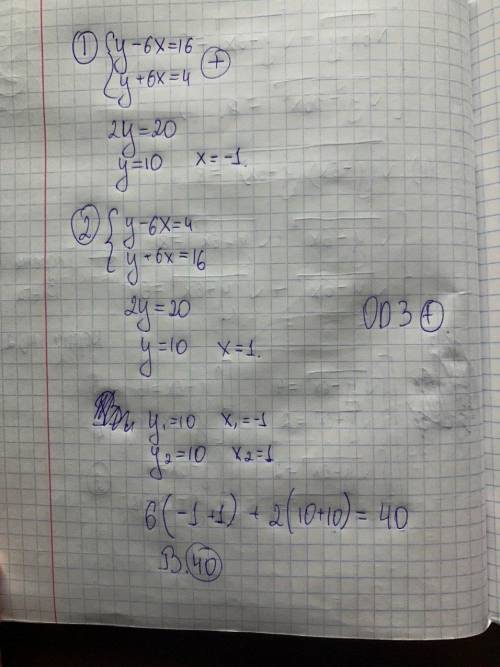 ① { y-6x=16
y+6x=4 (+)
2y=20
y=10 x=-1.
② { y-6x=4
y+6x=16
2y=20
y=10 x=1.
ОДЗ (+).
y₁=10 x₁=-1
y₂=10 x₂=1
6(-1+1) + 2(10+10) = 40
В. 40